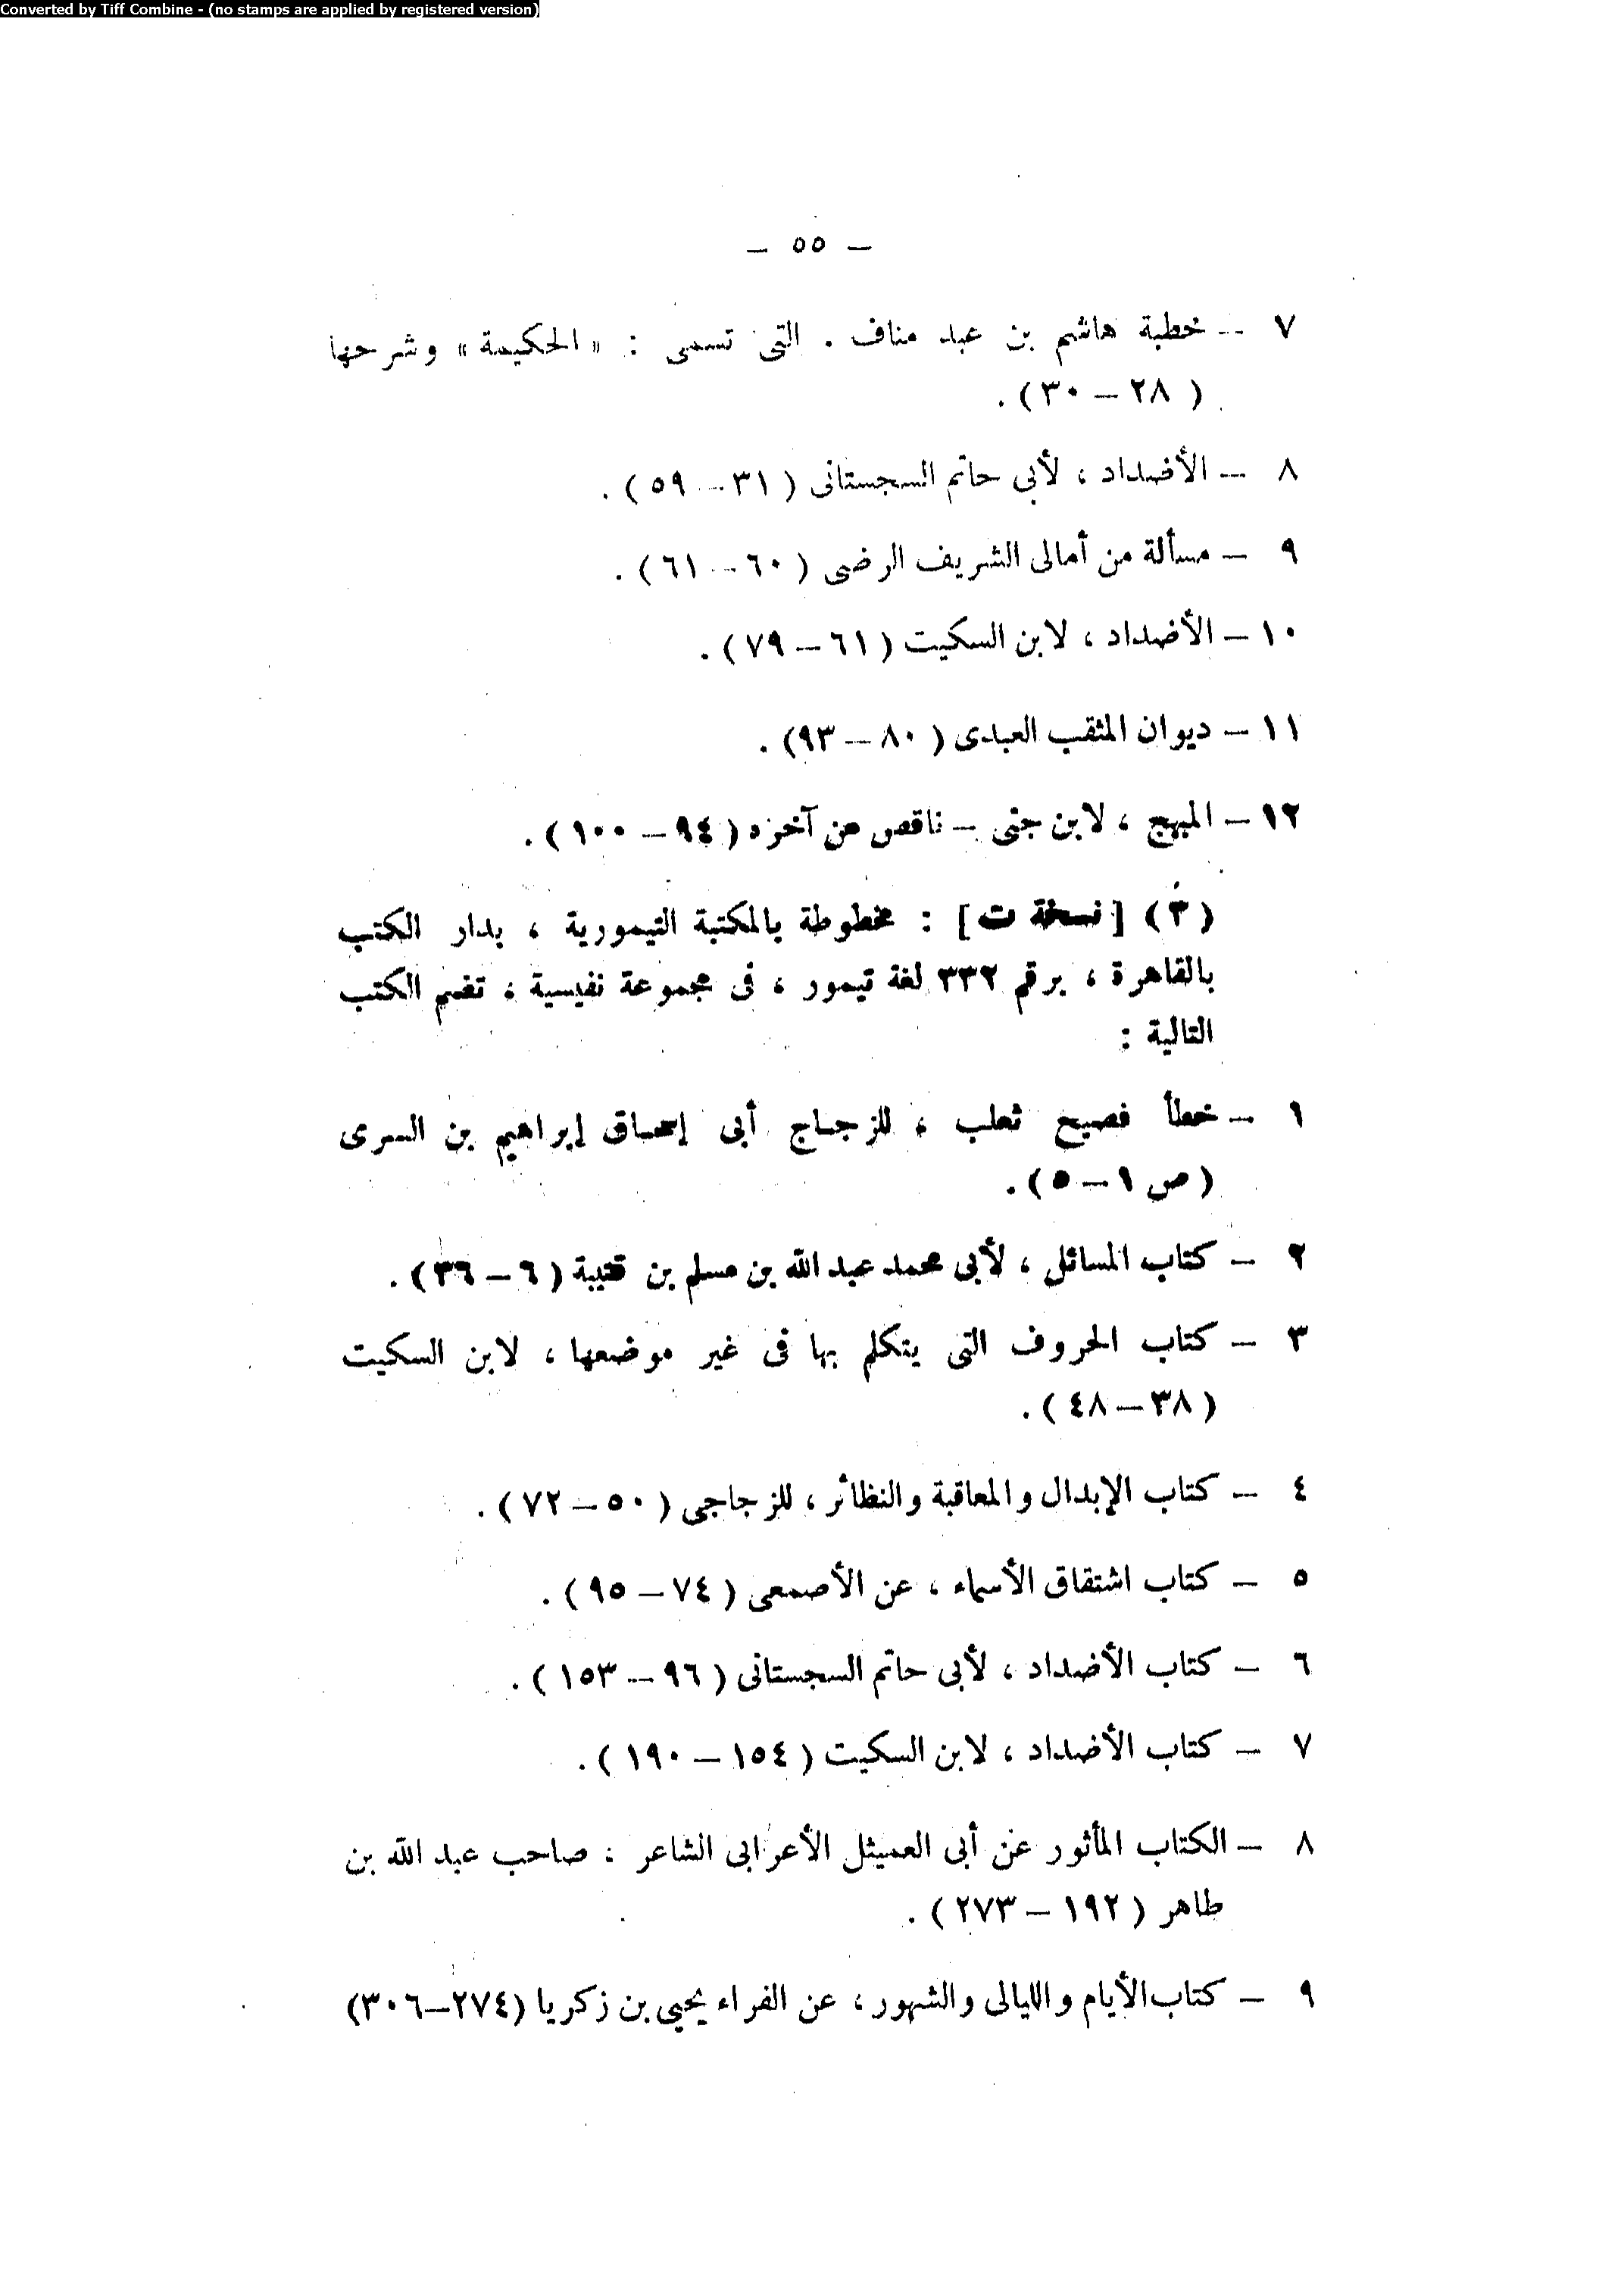 Converted by Tiff Combine - (no stamps are applied by registered version)
— ٥٥ —
٧ — خطبة هاشم بن عبد مناف . التى تسمى : « الحكيمة » وشرحها
( ٢٨ — ٣٠ ) .
٨ — الأضداد ، لأبى حاتم السجستانى ( ٣١ — ٥٩ ) .
٩ — مسألة من أمالى الشريف الرضى ( ٦٠ — ٦١ ) .
١٠ — الأضداد ، لابن السكيت ( ٦١ — ٧٩ ) .
١١ — ديوان المثقب العبدى ( ٨٠ — ٩٣ ) .
١٢ — المبهج ، لابن جنى — ناقص من آخره ( ٩٤ — ١٠٠ ) .
( ٣ ) [ نسخة ت ] : مخطوطة بالمكتبة التيمورية ، بدار الكتب
بالقاهرة ، برقم ٣٣٢ لغة تيمور ، فى مجموعة نفيسية ، تضم الكتب
التالية :
١ — خطأ فصيح ثعلب ، للزجاج أبى إسحاق إبراهيم بن السرى
( ص ١ — ٥ ) .
٢ — كتاب المسائل ، لأبى محمد عبد الله بن مسلم بن قتيبة ( ٦ — ٣٦ ) .
٣ — كتاب الحروف التى يتكلم بها فى غير موضعها ، لابن السكيت
( ٣٨ — ٤٨ ) .
٤ — كتاب الإبدال والمعاقبة والنظائر ، للزجاجى ( ٥٠ — ٧٢ ) .
٥ — كتاب اشتقاق الأسماء ، عن الأصمعى ( ٧٤ — ٩٥ ) .
٦ — كتاب الأضداد ، لأبى حاتم السجستانى ( ٩٦ — ١٥٣ ) .
٧ — كتاب الأضداد ، لابن السكيت ( ١٥٤ — ١٩٠ ) .
٨ — الكتاب المأثور عن أبى العميثل الأعرابى الشاعر ، صاحب عبد الله بن
طاهر ( ١٩٢ — ٢٧٣ ) .
٩ — كتاب الأيام والليالى والشهور ، عن الفراء يحيى بن زكريا ( ٢٧٤ — ٣٠٦ )